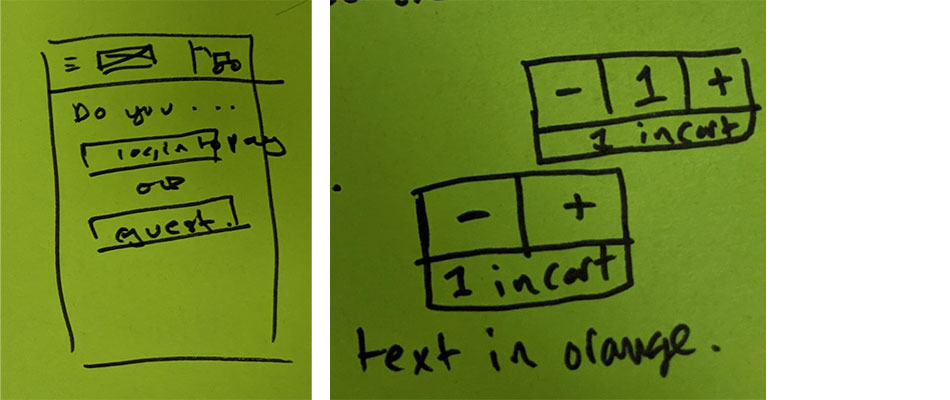 Do you ...
login to pay
or
guest.
- 1 +
1 in cart
- +
1 in cart
text in orange.